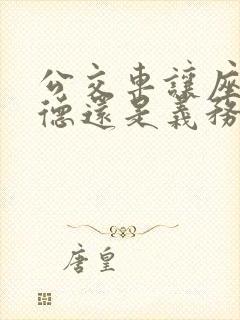 公交車讓座
德還是義務
唐皇